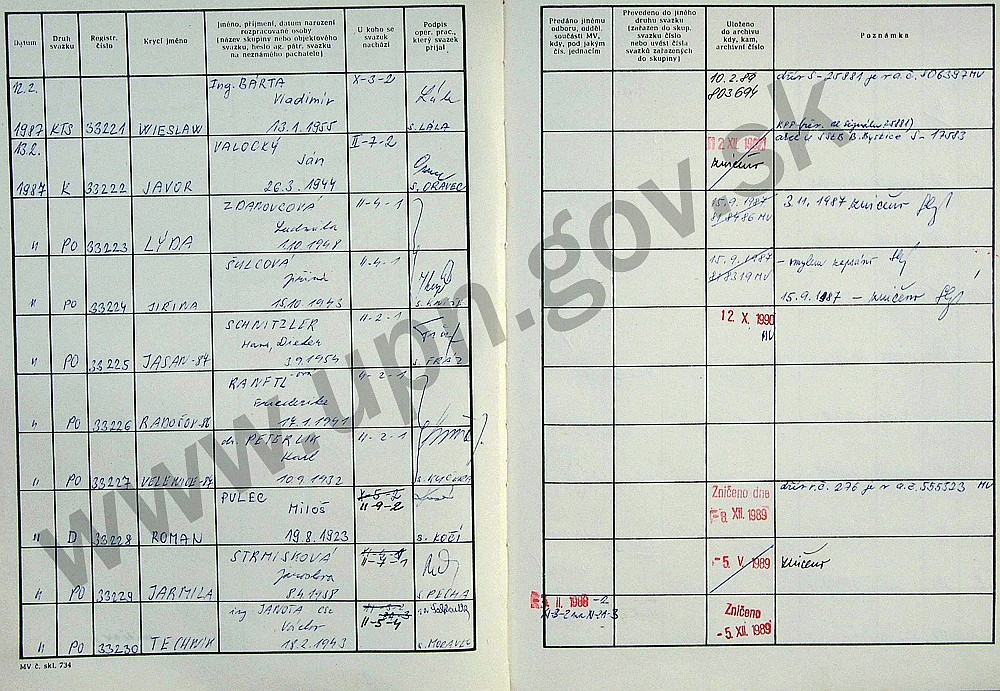 Datum
Druh svazku
Registr. číslo
Krycí jméno
Jméno, příjmení, datum narození
rozpracované osoby
(název skupiny nebo objektového
svazku, heslo ag. pátr. svazku
na neznámého pachatele)
U koho se
svazek
nachází
Podpis
oper. prac.,
který svazek
přijal
Předáno jinému
odboru, odděl.
součásti MV,
kdy, pod jakým
čís. jednacím
Převedeno do jiného
druhu svazku
(zařazen do skup.
číslo svazku
nebo uvést čísla
svazků zařazených
do skupiny)
Uloženo
do archivu
kdy, kam,
archivní číslo
Poznámka
12.2.
1987 KTS 33221 WIESLAW
Ing. BÁRTA
Vladimír
13.1.1955
X-3-2
s. LÁLA
10.2.89
803694
dříve S-25881 je v a.č.
13.2.
1987 K 33222 JAVOR
VALOCKÝ
Ján
26.3.1944
II-7-2
s. ORAVEC
zničeno
" PO 33223 LÝDA
ZDANOVCOVÁ
Ludmila
1.10.1948
II-4-1
15.9.1987
MV
3.11.1987 zničeno
" PO 33224 JIŘINA
ŠULCOVÁ
Jiřina
15.10.1943
II-4-1
15.9.1987
MV
- omylem zapsáno
15.9.1987 - zničeno
" PO 33225 JASAN-87
SCHNITZLER
Hans, Dieter
3.9.1954
II-2-1
12. X. 1990
MV
" PO 33226
RANFTL-ová
Friederike
17.1.1941
II-2-1
" PO 33227 VELENICE-87
dr. PETERLIK
Karl
10.9.1932
II-2-1
" D 33228 ROMAN
PULEC
Miloš
19.8.1923
X-5-2
II-9-2
s. KOČÍ
Zničeno dne
-8. XII. 1989
dříve r.č. 276 je v a.č. 555323 MV
" PO 33229 JARMILA
STRMISKOVÁ
Jaroslava
8.4.1938
II-7-1
s. PECHA
-5. V. 1989
zničeno
" PO 33230 TECHNIK
ing JANOTA CSc
Václav
18.2.1943
II-5-4
s. MORAVEC
II. 1988
Zničeno
-5. XII. 1989
MV č. skl. 734
www.upn.gov.sk